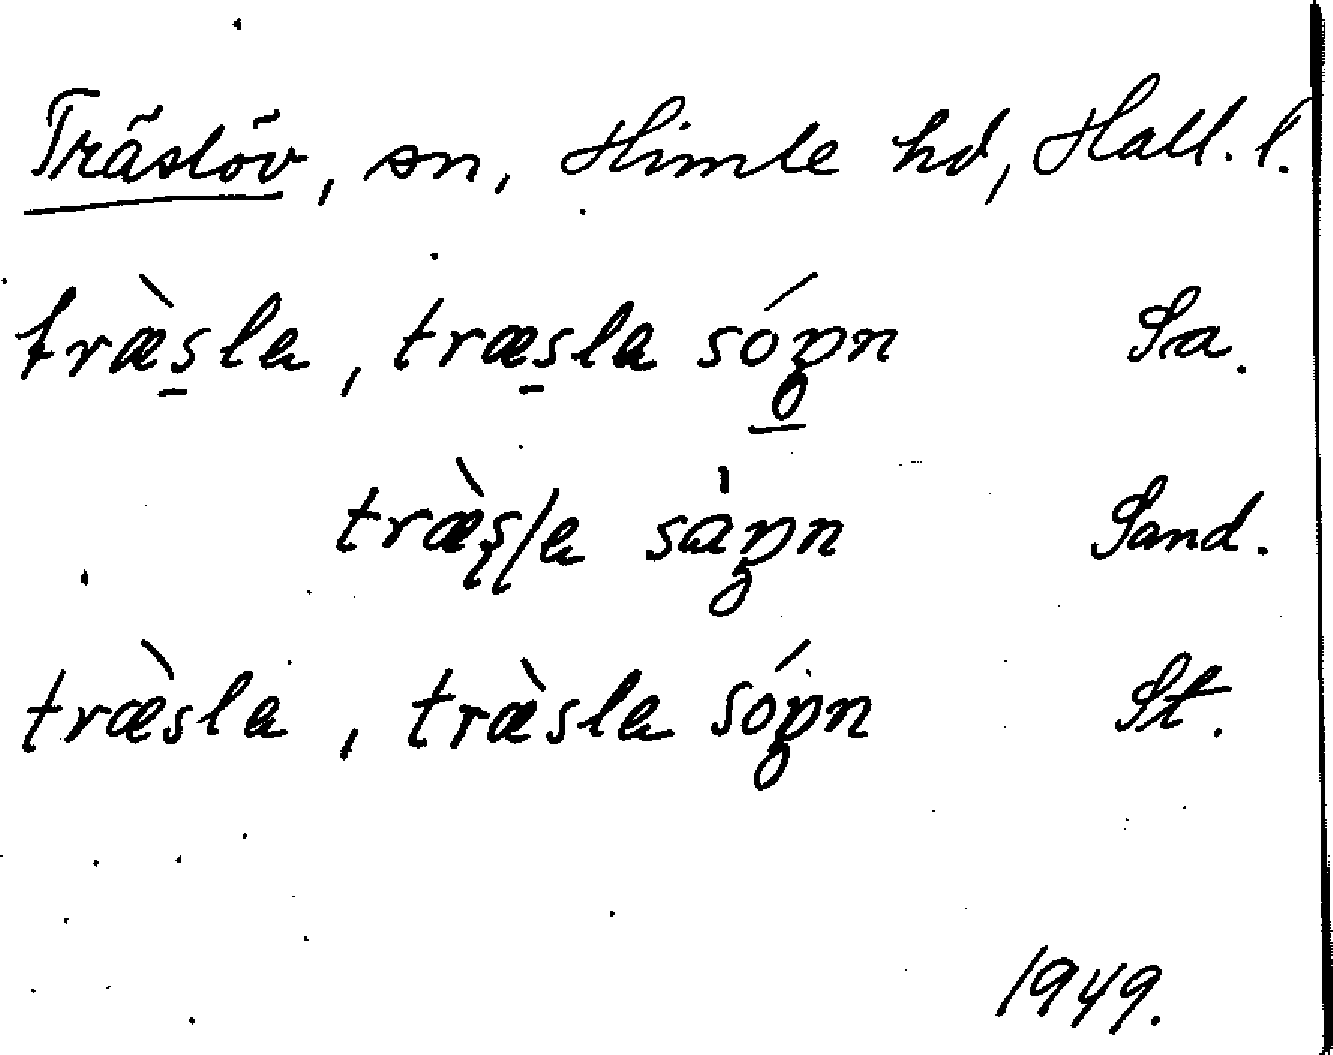 Träslöv, sn, Himle hd, Hall. l.
træ̀s̠la, træs̠la sóʒn Sa.
træ̀sla sàʒn Sand.
træ̀sla, træ̀sla sóʒn St.
1949.